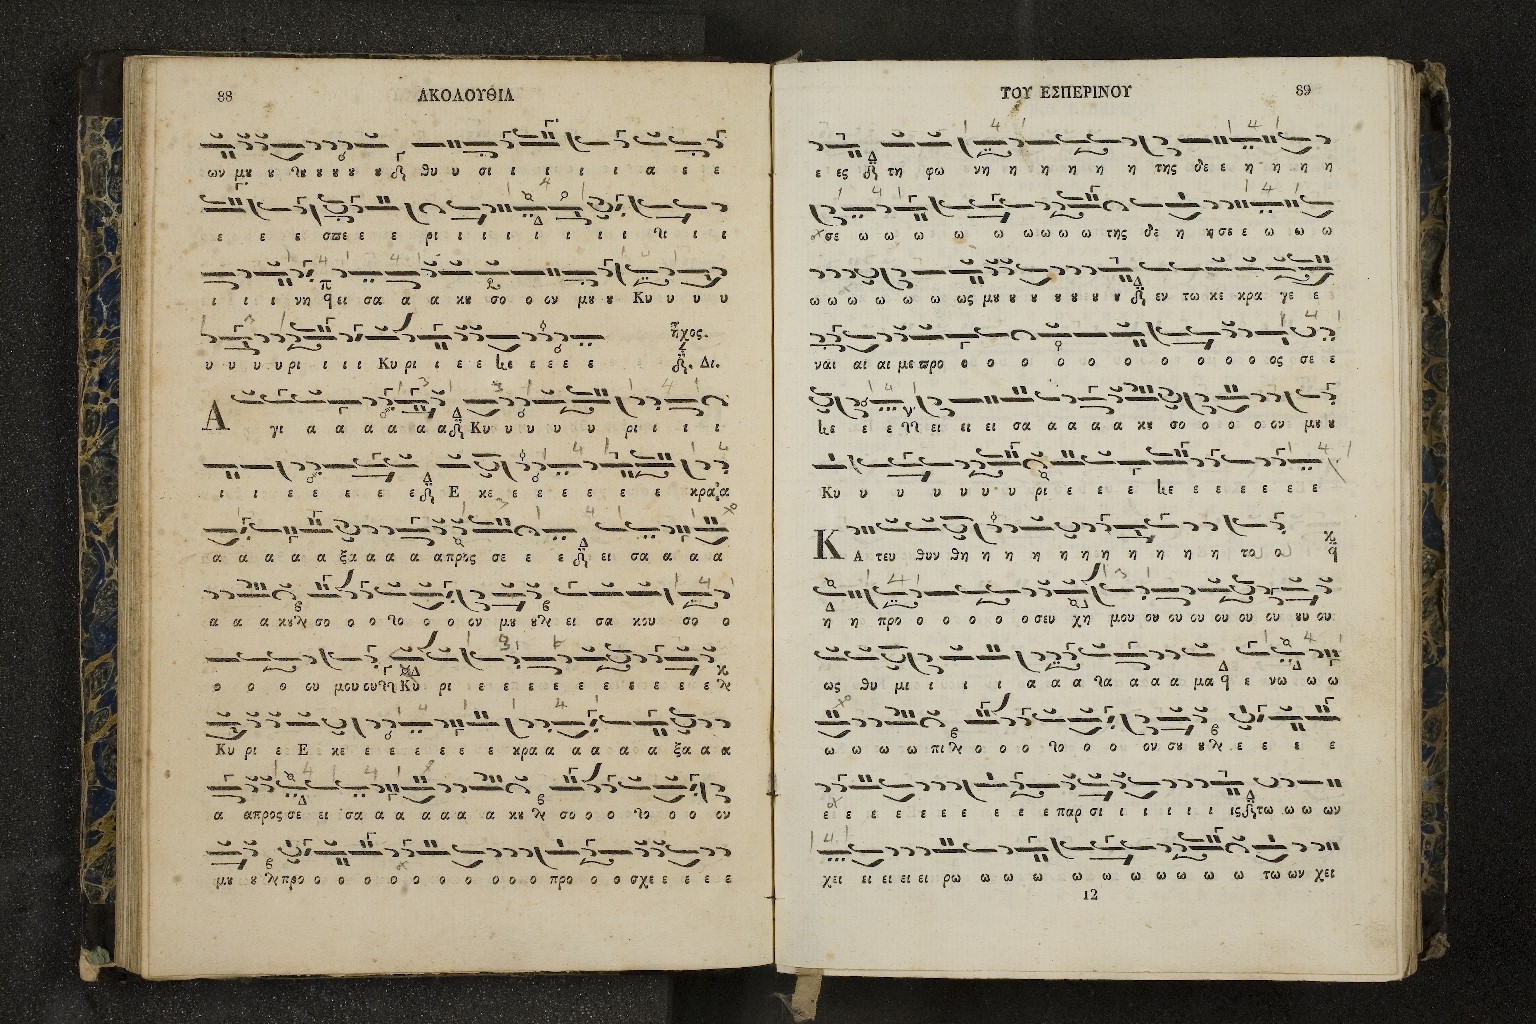 88 ΑΚΟΛΟΥΘΙΑ
ων μου ου του ου ου ου ου θυ υ σι ι ι ι ι α ε ε
ε ε ε σπε ε ε ρι ι ι ι ι ι ι ι τι ι ι
ι ι ι νη ει σα α α κου σο ο ον μου ου Κυ υ υ υ
υ υ υ υ ρι ι ι ι Κυ ρι ι ε ε λε ε ε ε ε
ἦχος. Δι.
Α γι α α α α α α α Κυ υ υ υ υ ρι ι ι ι
ι ι ε ε ε ε ε ε Ε κε ε ε ε ε ε ε κρα α
α α α α α ξα α α α απρος σε ε ε ει σα α α α
α α α κου σο ο ο το ο ο ον μου ου ει σα κου σο ο
ο ο ο ου μου ου Κυ ρι ε ε ε ε ε ε ε ε ε ε
Κυ ρι ε Ε κε ε ε ε ε ε ε κρα α α α α α ξα α α
α απρος σε ει σα α α α α α α κου σο ο ο το ο ο ον
μου ου προ ο ο ο ο ο ο ο ο ο ο προ ο ο σχε ε ε ε ε
ΤΟΥ ΕΣΠΕΡΙΝΟΥ 89
ε ες τη φω νη η η η η η της δε ε η η η η
σε ω ω ω ω ω ω ω ω ω της δε η η σε ε ω ω ω
ω ω ω ω ω ω ως μου ου ου ου ου ου ου εν τω κε κρα γε ε
ναι αι αι με προ ο ο ο ο ο ο ο ο ο ο ος σε ε
λε ε ε ει ει ει σα α α α α κου σο ο ο ο ον μου ου
Κυ υ υ υ υ υ υ ρι ε ε ε λε ε ε ε ε ε ε
Κ Α τευ θυν θη η η η η η η η η η η το ο
η η προ ο ο ο ο ο σευ χη μου ου ου ου ου ου ου ου ου
ως θυ μι ι ι ι α α α τα α α α μα ε νω ω ω
ω ω ω ω πι ο ο ο το ο ο ον σου ου ε ε ε ε
ε ε ε ε ε ε ε ε ε ε παρ σι ι ι ι ι ι ις τω ω ω ων
χει ει ει ει ει ρω ω ω ω ω ω ω ω ω ω τω ων χει
12